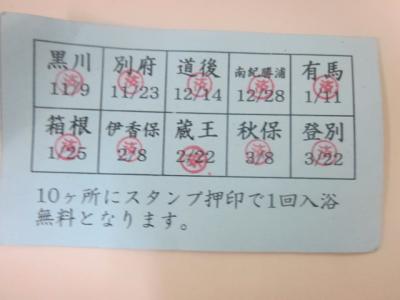 黒川 別府 道後 南紀勝浦 有馬
11/9 11/23 12/14 12/28 1/11
済 済 済 済 済
箱根 伊香保 蔵王 秋保 登別
1/25 2/8 2/22 3/8 3/22
済 済 済 済
10ヶ所にスタンプ押印で1回入浴
無料となります。